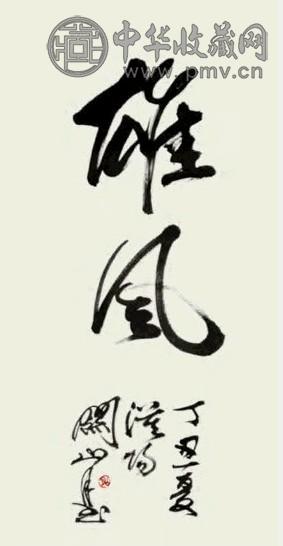 中华收藏网
www.pmv.cn
雄风
丁丑夏
关山月